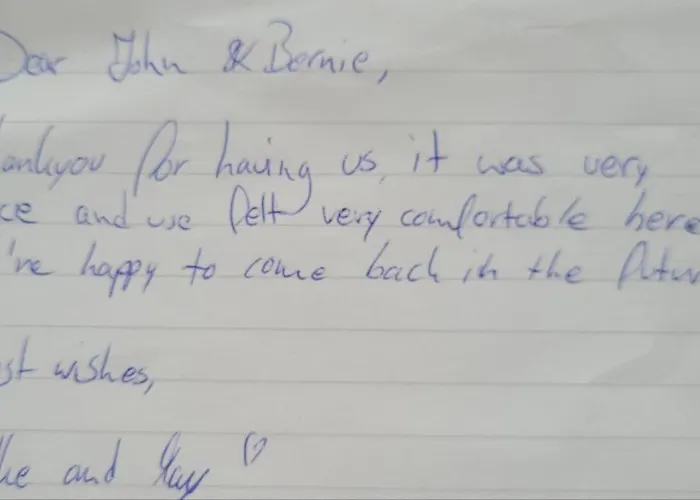 Dear John & Bernie,
ankyou for having us, it was very
ce and we felt very comfortable here
're happy to come back in the futur
st wishes,
and